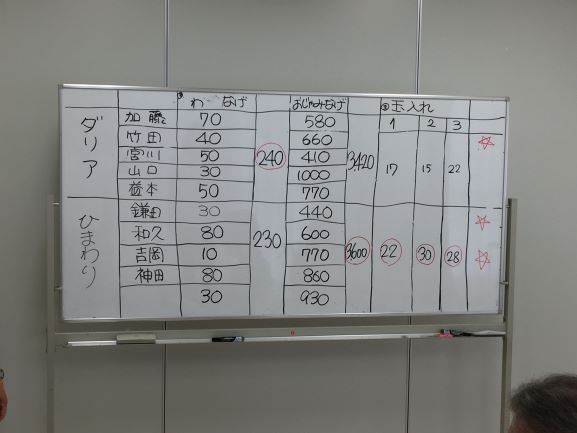 わなげ おじゃみなげ ③玉入れ
1 2 3
ダリア
加藤 70 580
竹田 40 660
宮川 50 240 410 3,420 17 15 22
山口 30 1000
益本 50 770
ひまわり
鎌田 30 440
和久 80 230 600
吉岡 10 770 3600 22 30 28
神田 80 860
30 930